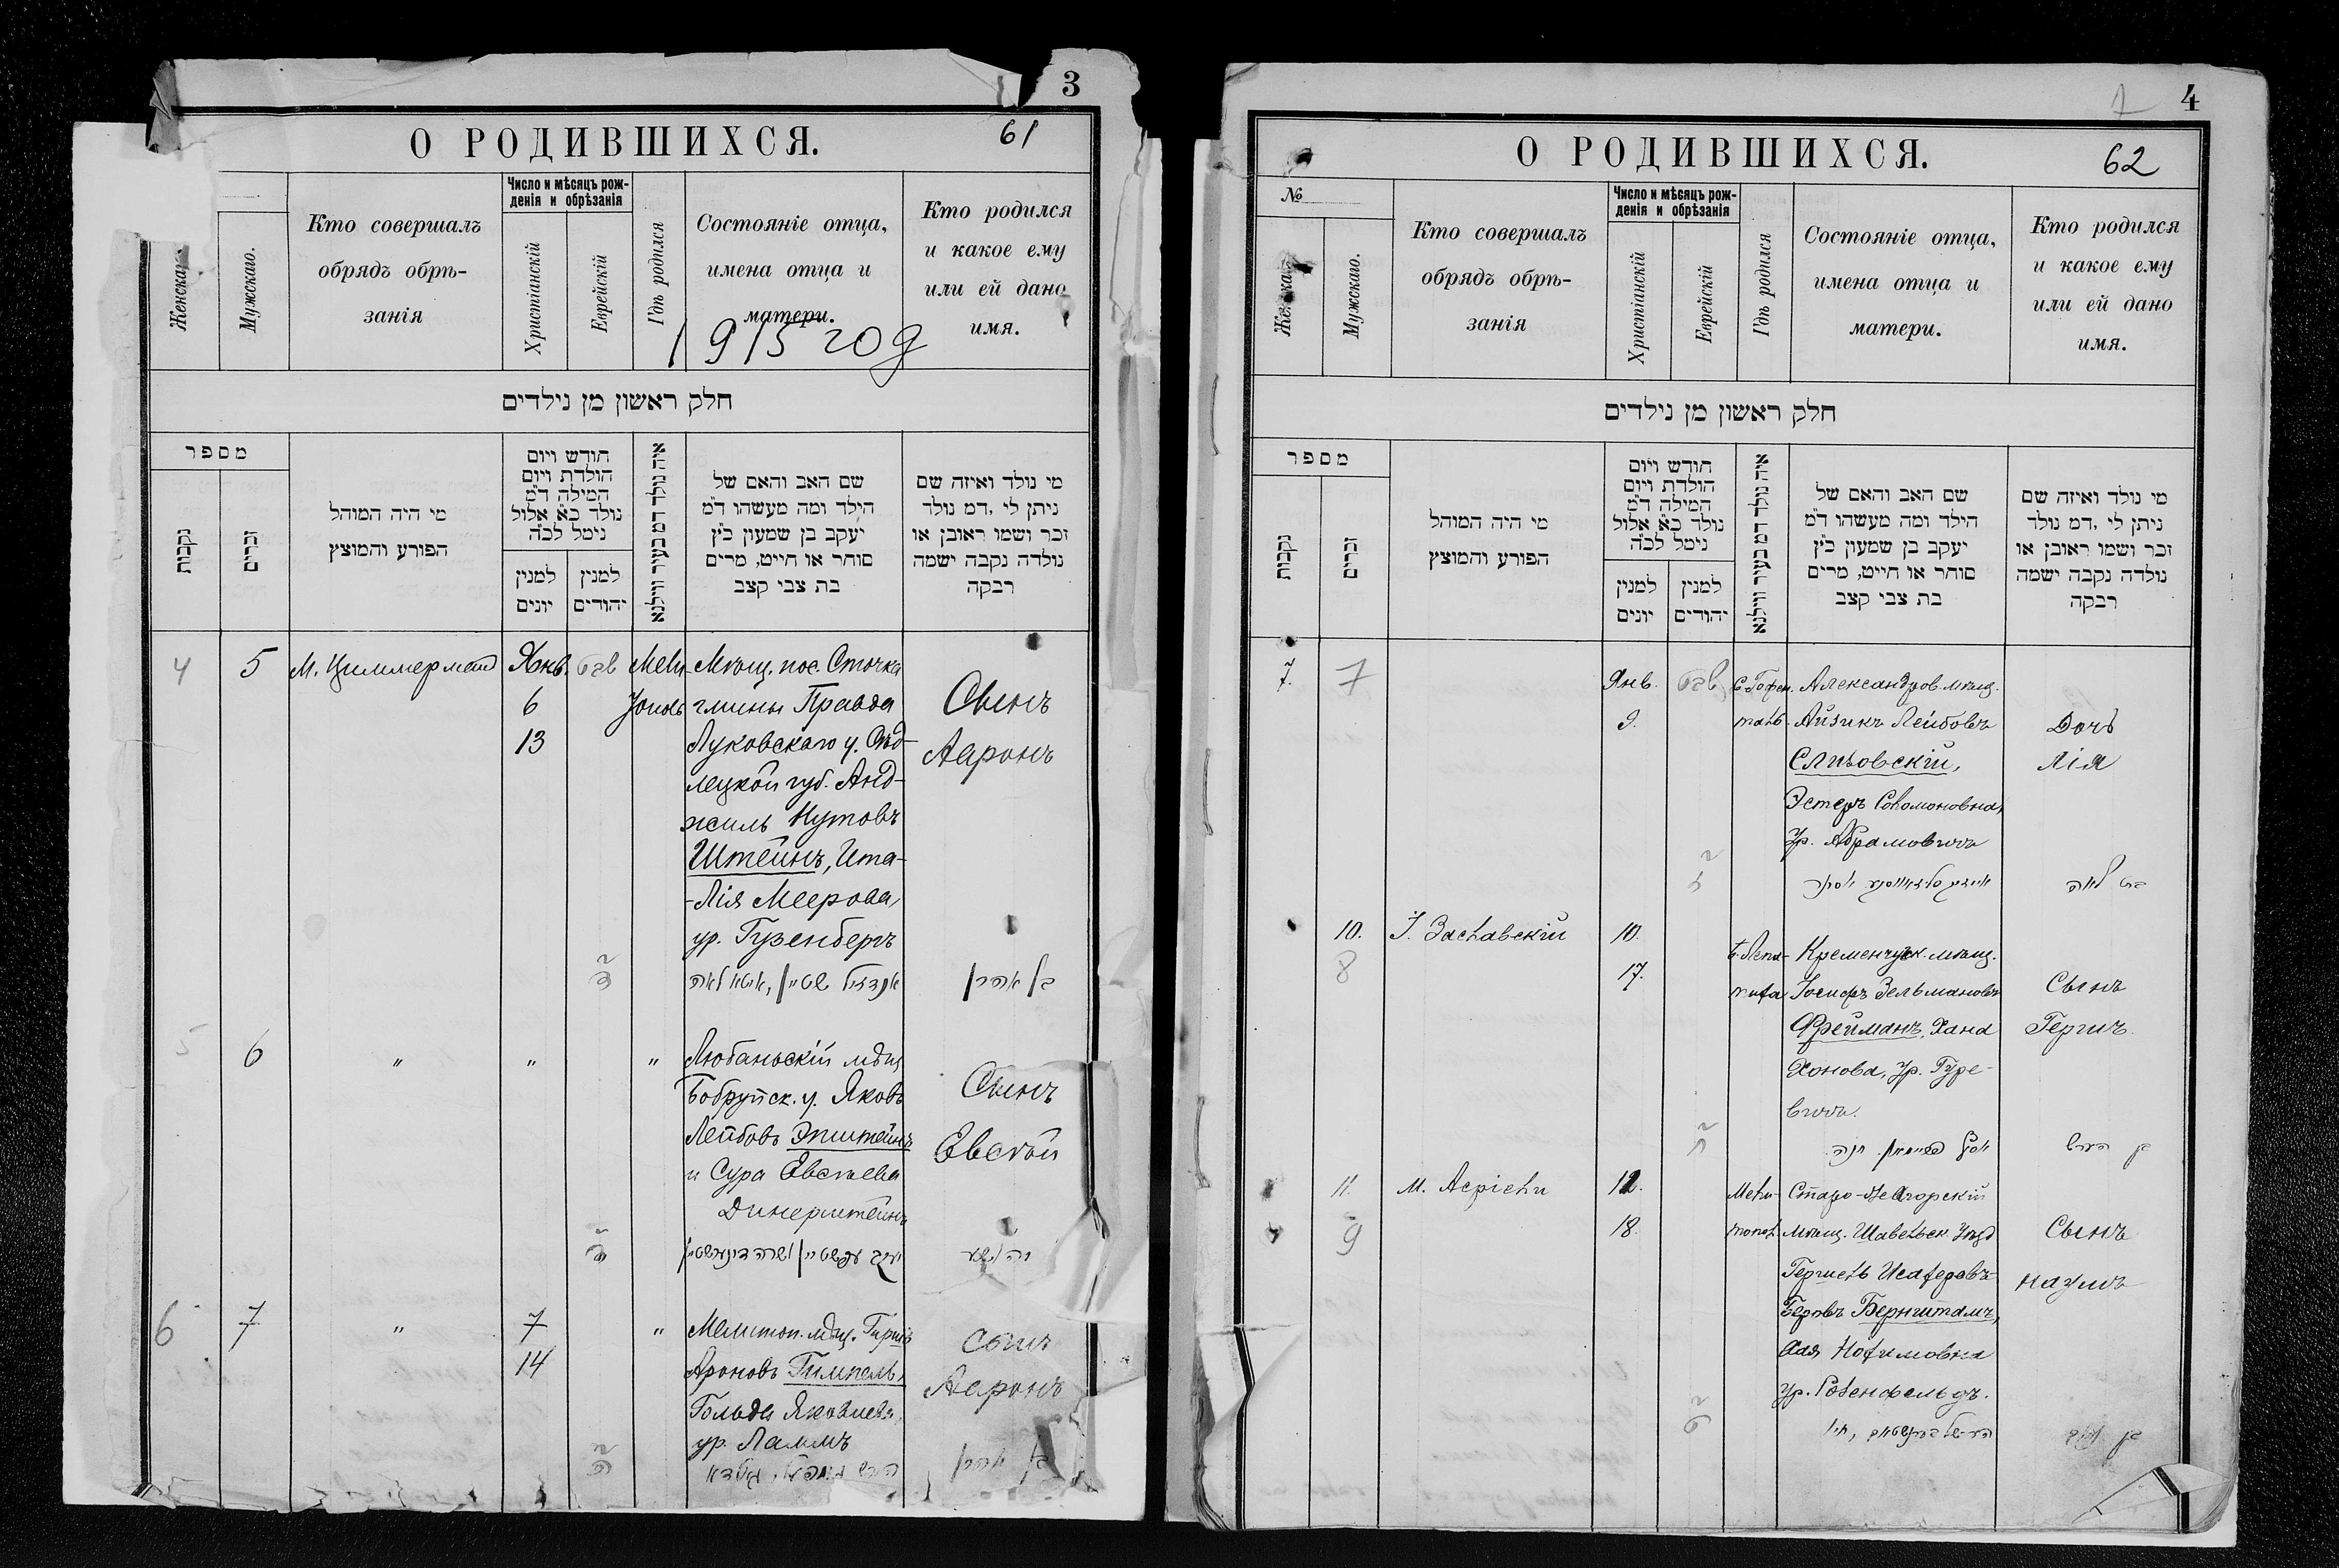 3
О РОДИВШИХСЯ.
61
Женскаго
Мужскаго.
Кто совершалъ
обрядъ обрѣ-
занія
Число и мѣсяцъ рож-
денія и обрѣзанія
Христіанскій
Еврейскій
Гдѣ родился
Состояніе отца,
имена отца и
матери.
Кто родился
и какое ему
или ей дано
имя.
1915 год
חלק ראשון מן נילדים
מספר
נקבות
זכרים
מי היה המוהל
הפורע והמוצץ
חודש ויום
הולדת ויום
המילה ד"מ
נולד כ"א אלול
נימל לכ"ה
למנין
יונים
למנין
יהודים
איה נולד דמ בעיר ווילנא
שם האב והאם של
הילד ומה מעשהו ד"מ
יעקב בן שמעון כ"ץ
סוחר או חייט, מרים
בת צבי קצב
מי נולד ואיזה שם
ניתן לי ,דמ נולד
זכר ושמו ראובן או
נולדה נקבה ישמה
רבקה
4
5
М. Циммерман
Янв.
6
13
טבת
Мели-
Мѣщ. пос. Сточка
гмины Правда
Луковскаго у. Сѣд-
лецкой губ. Анд-
жиль Нутовъ
Штейнъ, Ита-
-Лія Меерова,
ур. Гузенбергъ
Сынъ
Ааронъ
בן אהרן
5
6
"
"
"
Любаньскій мѣщ
Бобруйск. у. Яковъ
Лейбовъ Эпштейнъ
и Сура Евсѣева
Динерштейнъ
Сынъ
Евсѣй
6
7
"
7
14
"
Мелитоп. мѣщ. Гиршъ
Ароновъ Гимпель,
Гольда Яковлева,
ур. Ламмъ
Сынъ
Ааронъ
בן אהרן
7
4
О РОДИВШИХСЯ.
62
№
Женскаго
Мужскаго.
Кто совершалъ
обрядъ обрѣ-
занія
Число и мѣсяцъ рож-
денія и обрѣзанія
Христіанскій
Еврейскій
Гдѣ родился
Состояніе отца,
имена отца и
матери.
Кто родился
и какое ему
или ей дано
имя.
חלק ראשון מן נילדים
מספר
נקבות
זכרים
מי היה המוהל
הפורע והמוצץ
חודש ויום
הולדת ויום
המילה ד"מ
נולד כ"א אלול
נימל לכ"ה
למנין
יונים
למנין
יהודים
איה נולד דמ בעיר ווילנא
שם האב והאם של
הילד ומה מעשהו ד"מ
יעקב בן שמעון כ"ץ
סוחר או חייט, מרים
בת צבי קצב
מי נולד ואיזה שם
ניתן לי ,דמ נולד
זכר ושמו ראובן או
נולדה נקבה ישמה
רבקה
7.
7
Янв.
9.
טבת
Александров. мѣщ.
Айзикъ Лейбовъ
Эстеръ Соломоновна,
Ур. Абрамовичъ
Дочь
Лія
בת לאה
10.
8
І. Заславскій
10.
17.
Кременчугск. мѣщ.
Іосифъ Зельмановъ
Фрейманъ, Хана
Хонова, Ур. Гуре-
вичъ.
Сынъ
Гершъ.
11.
9
12.
18.
Мели-
мѣщ.
Бернштамъ,
ур. Розенфельдъ.
Сынъ
Наумъ